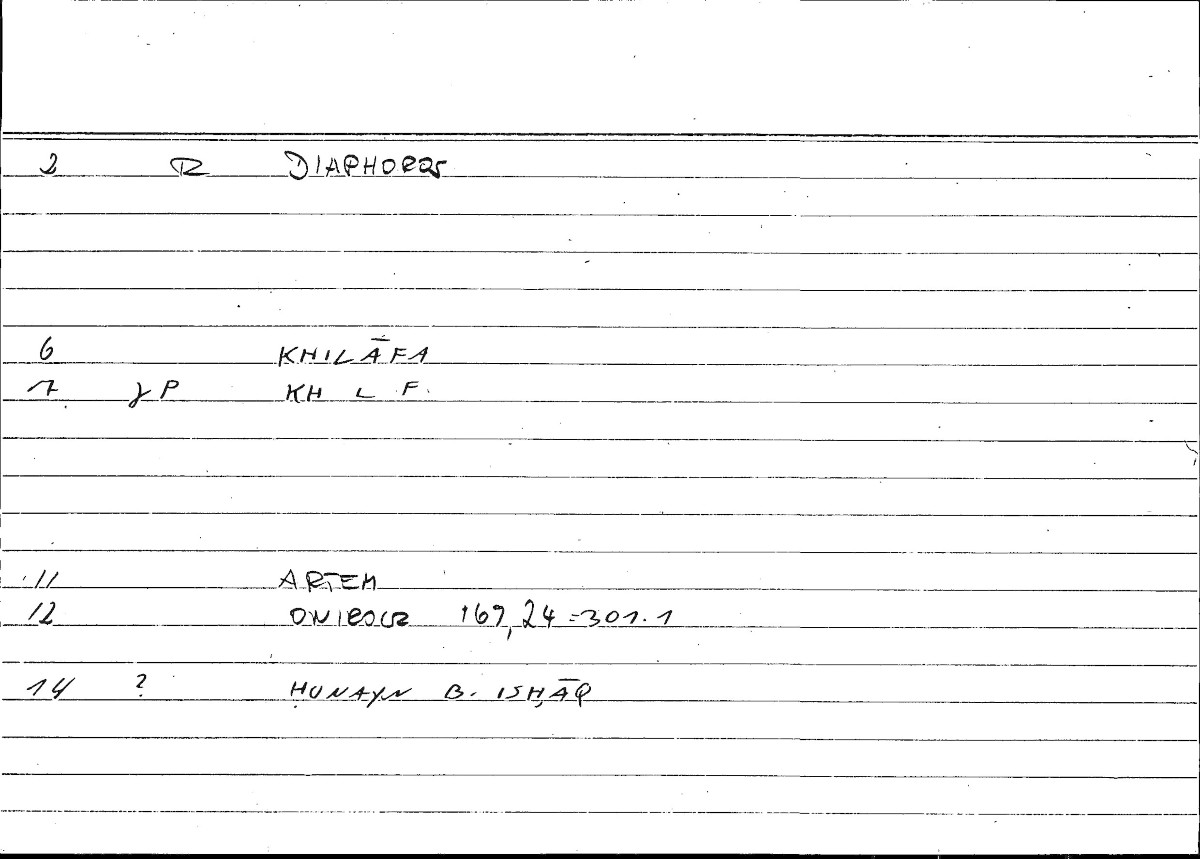 2 R
6 KHILĀFA
7 P KH L F.
11 ARTEM
12 ONIROCR 169,24 = 301.1
14 ? ḤUNAYN B. ISḤĀQ